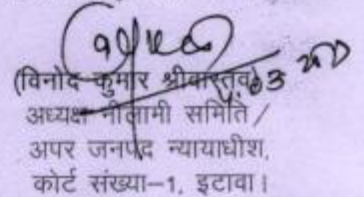 (विनोद कुमार श्रीवास्तव)
अध्यक्ष नीलामी समिति /
अपर जनपद न्यायाधीश,
कोर्ट संख्या-1, इटावा।